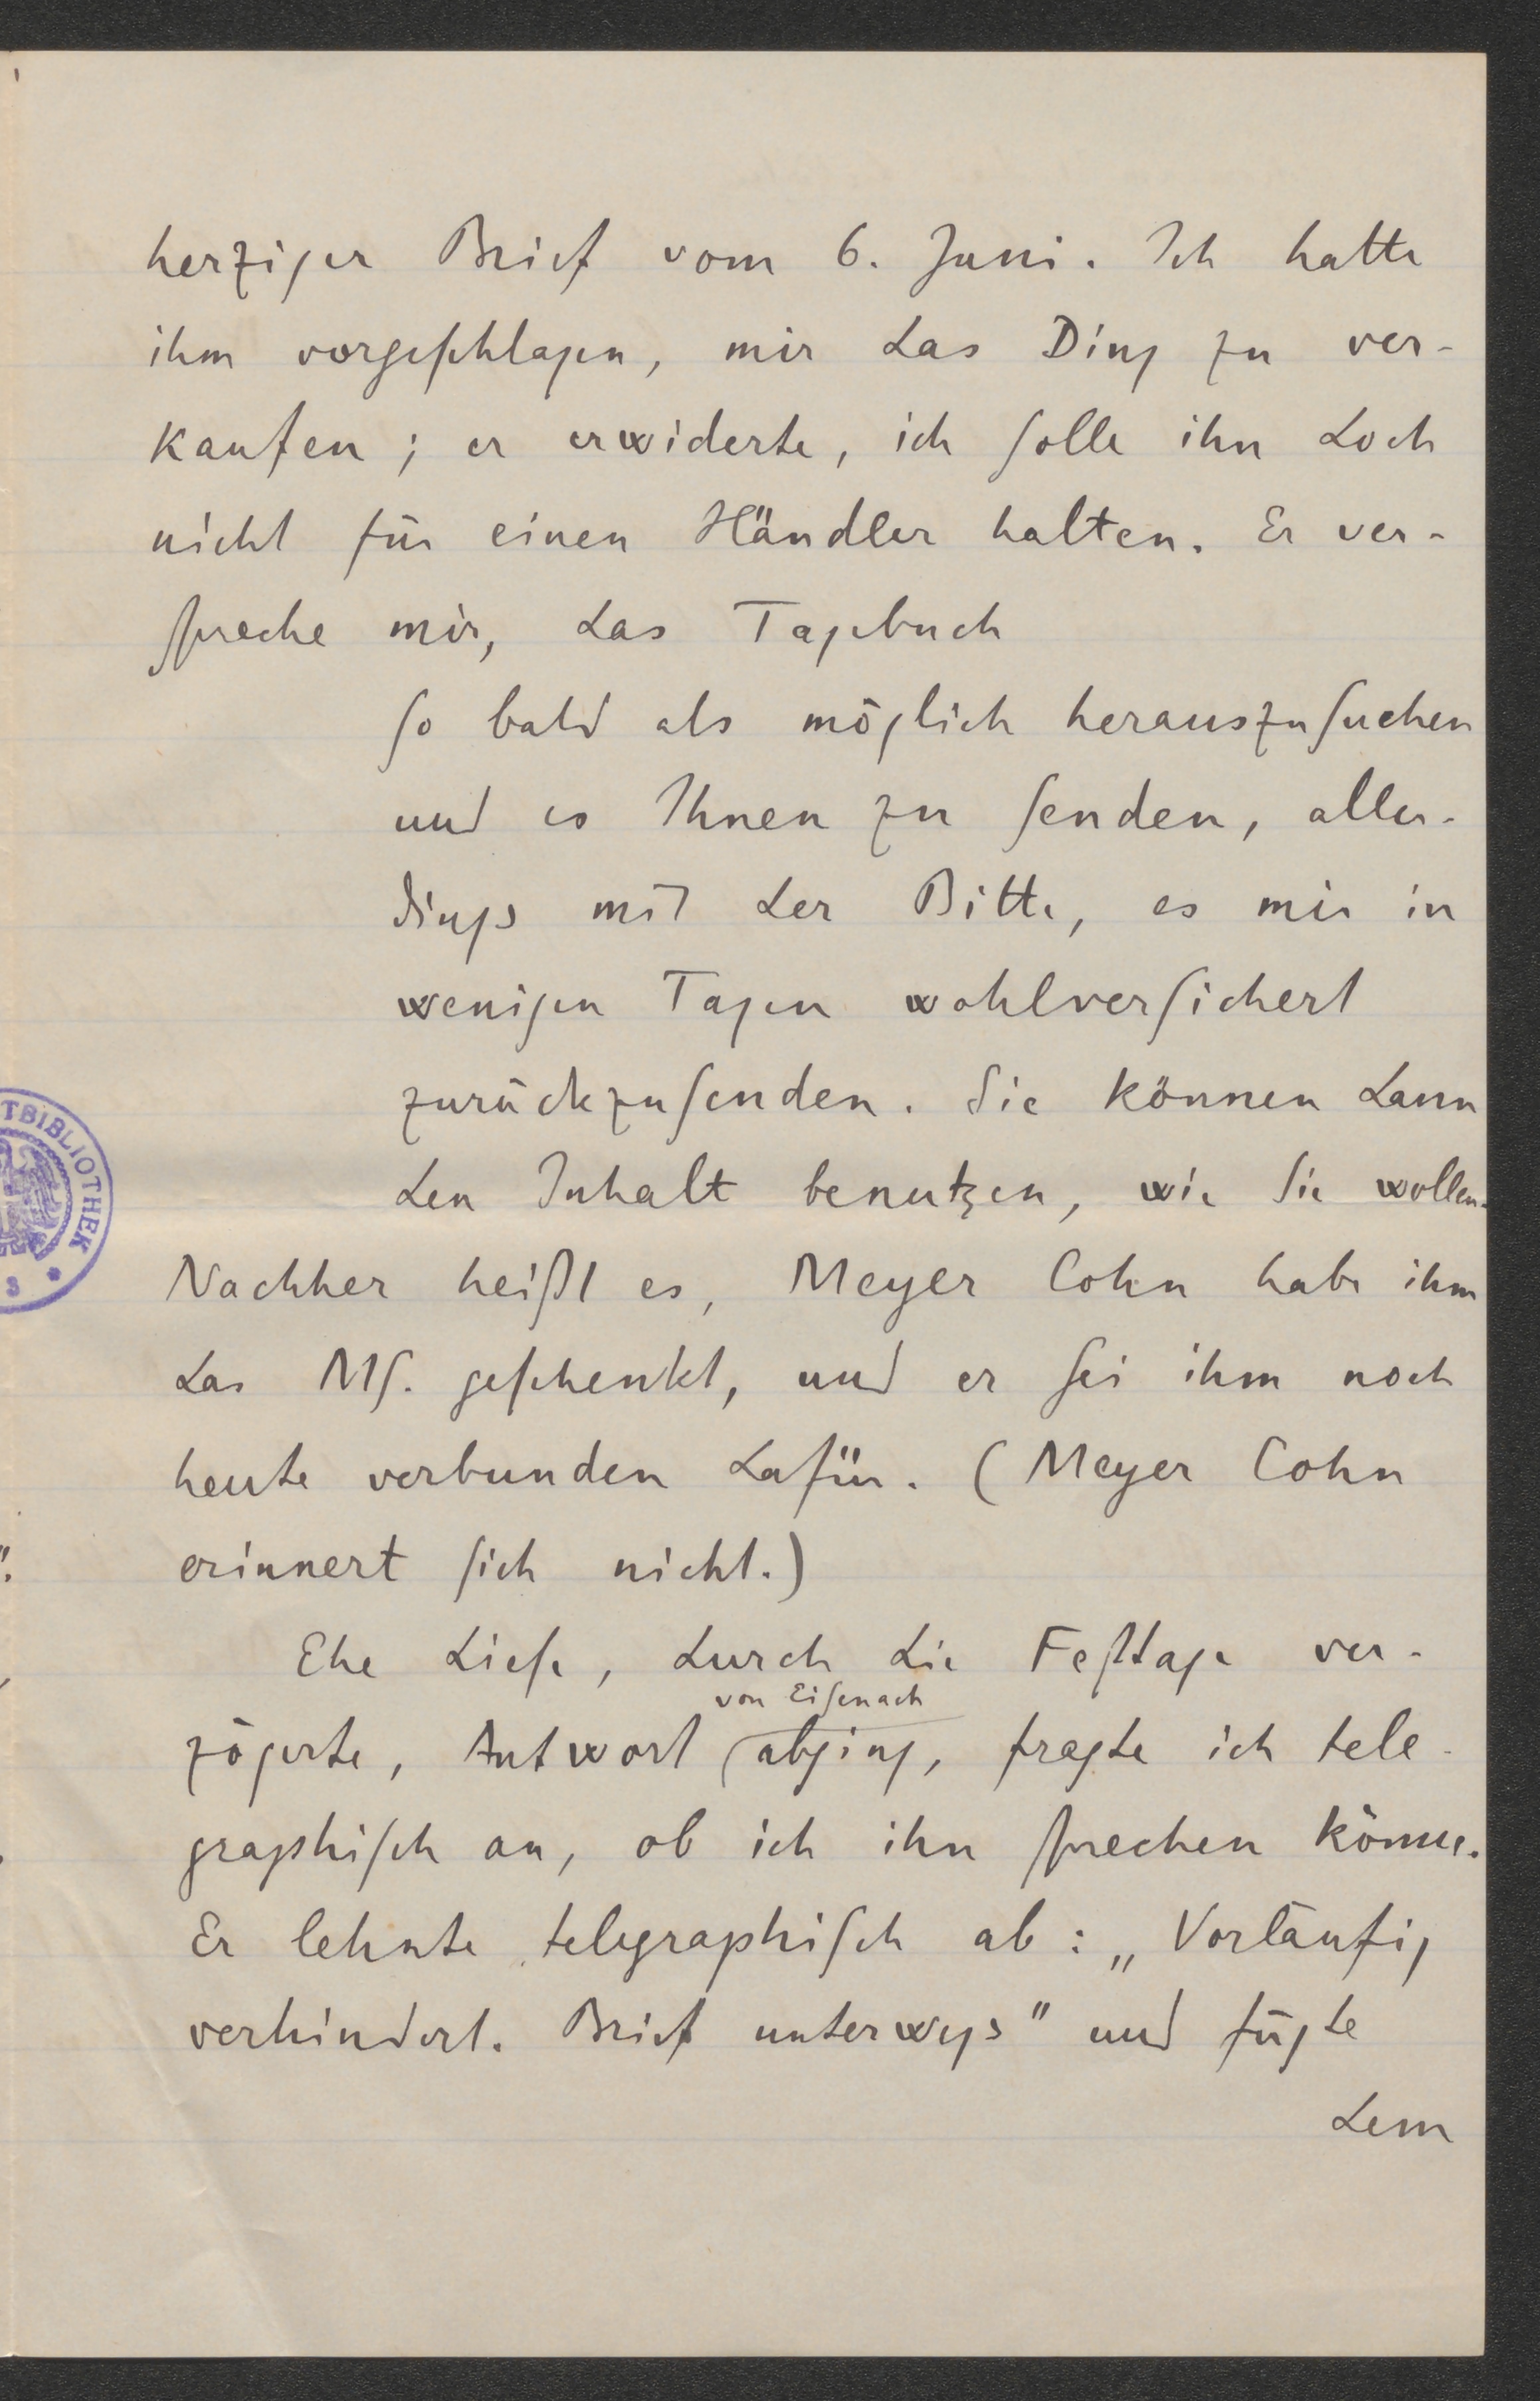 herziger Brief vom 6. Juni. Ich hatte
ihm vorgeſchlagen, mir das Ding zu ver-
kaufen; er erwiderte, ich ſolle ihn doch
nicht für einen Händler halten. Er ver-
ſpreche mir, das Tagebuch
ſo bald als möglich herauszuſuchen
und es Ihnen zu ſenden, aller-
dings mit der Bitte, es mir in
wenigen Tagen wohlverſichert
zurückzuſenden. Sie können dann
den Inhalt benutzen, wie Sie wollen.
TBIBLIOTHEK
Nachher heißt es, Meyer Cohn habe ihm
das Mſ. geſchenkt, und er ſei ihm noch
heute verbunden dafür. (Meyer Cohn
erinnert ſich nicht.)
Ehe dieſe, durch die Feſttage ver-
von Eiſenach
zögerte, Antwort abging, fragte ich tele-
graphiſch an, ob ich ihn ſprechen könne.
Er lehnte telegraphiſch ab: „Vorläufig
verhindert. Brief unterwegs" und fügte
dem